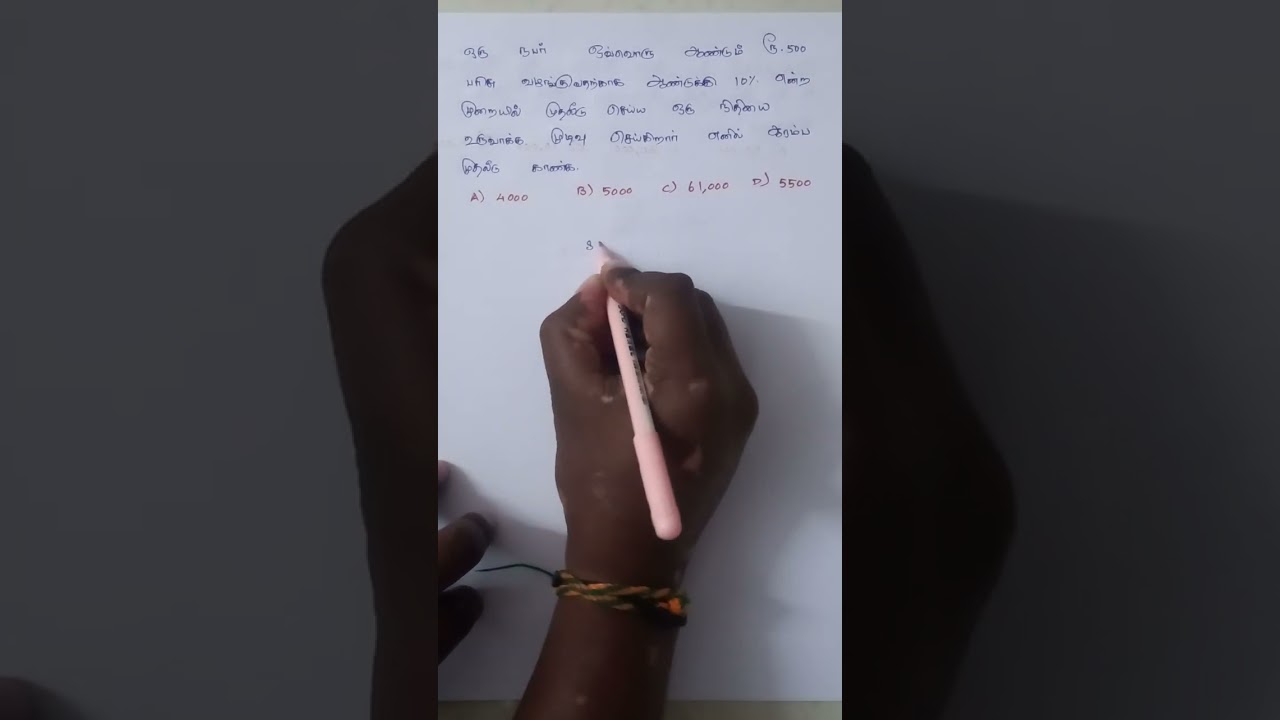 ஒரு நபர் ஒவ்வொரு ஆண்டும் ரூ.500
பரிசு வழங்குவதற்காக ஆண்டுக்கு 10% என்ற
முறையில் முதலீடு செய்ய ஒரு நிதியை
உருவாக்க முடிவு செய்கிறார் எனில் ஆரம்ப
முதலீடு காண்க.
A) 4000 B) 5000 C) 61,000 D) 5500